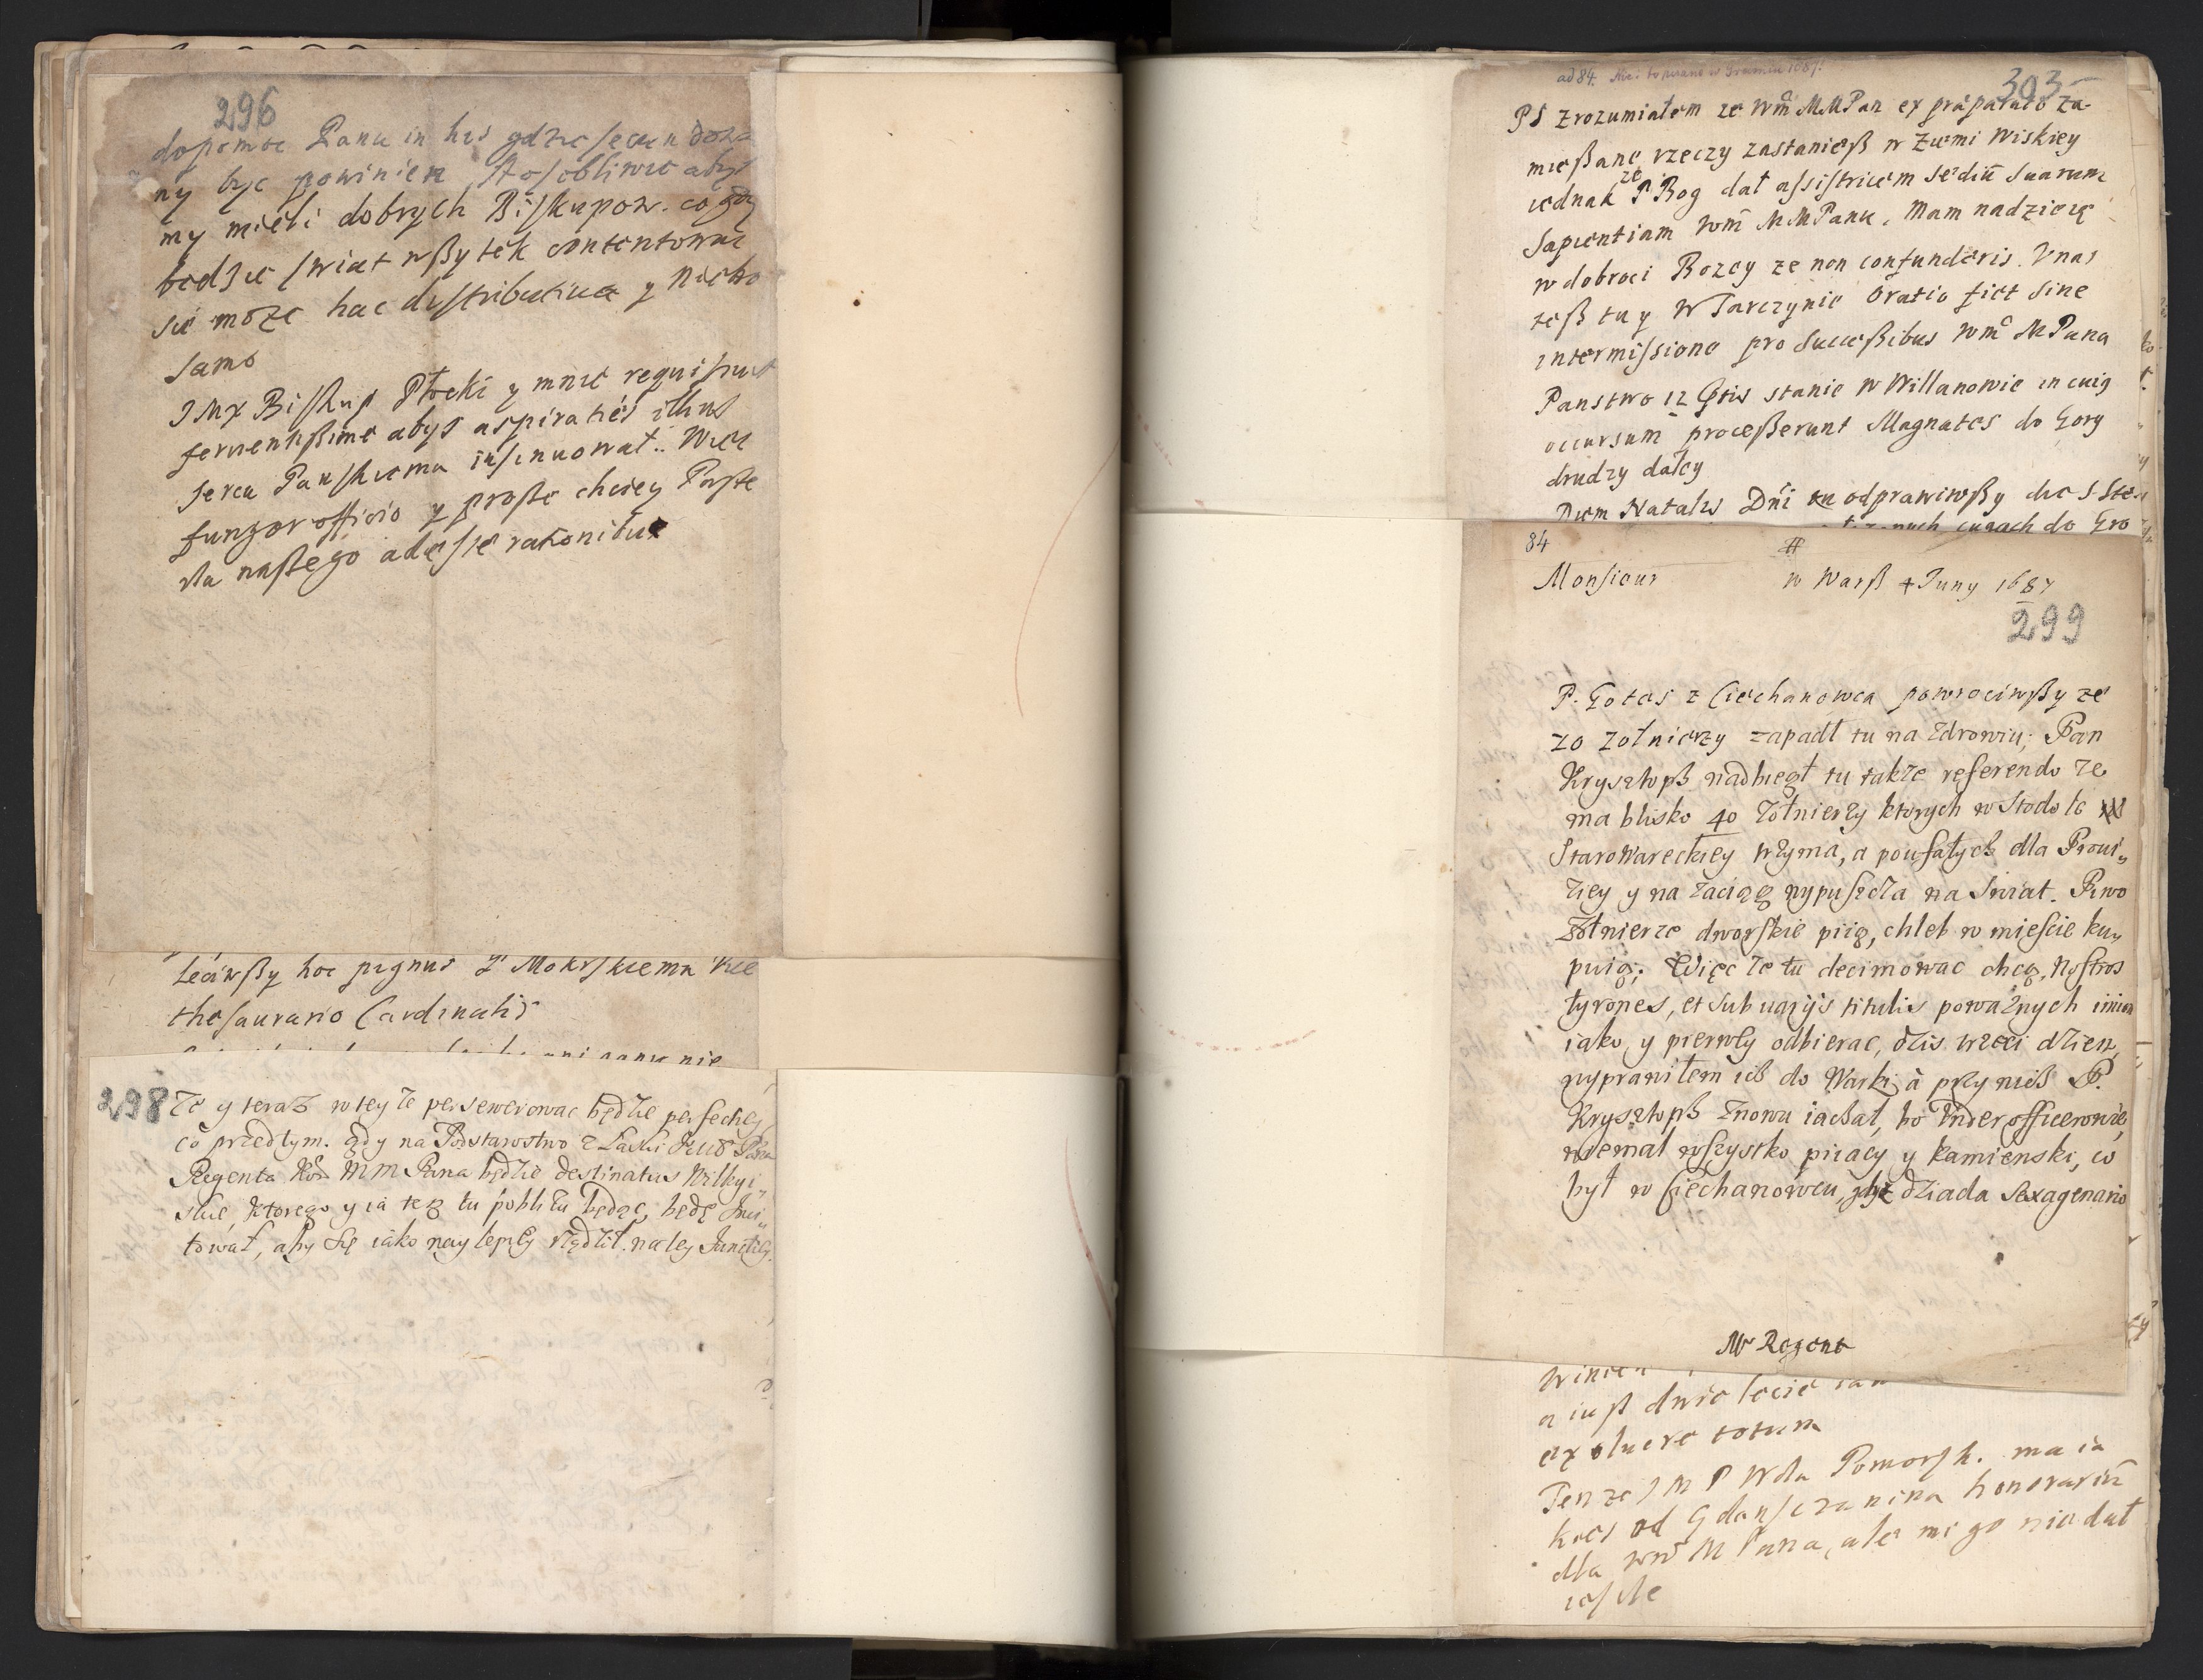 296
dopomoc Panu in his gdzie secun
ny byc powinien, A osobliwie abys
my mieli dobrych Biskupow. co gdy
bedzie swiat wßytek contentowac
sie moze hac distributiua y Niebo
samo
JMX Biskup Płocki y mnie requisiuit
feruentißime abys aspiraties illius
sercu Panskiemu insinuował. Wiec
fungor officio y proße chciey Poße
sta naßego adesse rationibus
hoc pignus Z Mokrskiemu
thesaurario Cardinalis
298
Ze y teraz w tey ze persewerowac będzie perfectiey
co przedtym. gdy na Podstarostwo z Łaski Jeuo Pana
Regenta MM Pana będzie destinatus Wilkyi„
ski, ktorego y ia tez tu poblizu będąc, będę Inui„
tował, aby Się iako naylepiey rządził na tey Functiey.
ad 84.
303
PS Zrozumiałem ze Wm MMPan ex praeparato za
mießane rzeczy zastanieß w Ziemi Wiskiey
iednak ze P Bog dał assistricem sediu Suarum
Sapientiam Wm MMPanu, Mam nadzieię
w dobroci Bozey ze non confunderis. Vnas
teß tu y W Tarczynie Oratio fiet Sine
intermissione pro Succeßibus Wm MPana
Panstwo 12 Xbris stanie W Willanowie in cuig
occursum proceßerunt Magnates do Gory
drudzy daley
Diem Natalis Dni tu odprawiwßy die S Ste
cugach do Gro
84
Monsieur w Warß 7 Juny 1687
299
P. Gotas z Ciechanowca powrociwßy ze
20 Zołnierzy zapadł tu na Zdrowiu; Pan
Krysztopß nadbiegł tu takze referendo ze
ma blisko 40 Zołnierzy ktorych w Stodole
StaroWareckiey trzyma, a poufałych dla Prowi„
ziey y na Zaciąg wypuszcza na Swiat. Piwo
Zołnierze dworskie piią, chleb w miescie ku„
puią; Więc ze tu decimowac chcą, Nostros
tyrones, et sub uarijs titulis powaznych imion
iako y pierwey odbierac, dzis trzeci dzien,
wyprawiłem ich do Warki à przy nich P.
Krysztopß Znowu iachał, bo Vnder officerowie,
niemal wszystko piiacy y Kamienski, co
był w Ciechanowcu, gdyz dziada Sexagenario
Mr Regent
a iuß dwie lecie
ex oluere totum
Tenze JMP Wda Pomorsk. ma ia
kies od Gdansczanina honorariu
dla Wm M Pana, ale mi go nie dał
iescze